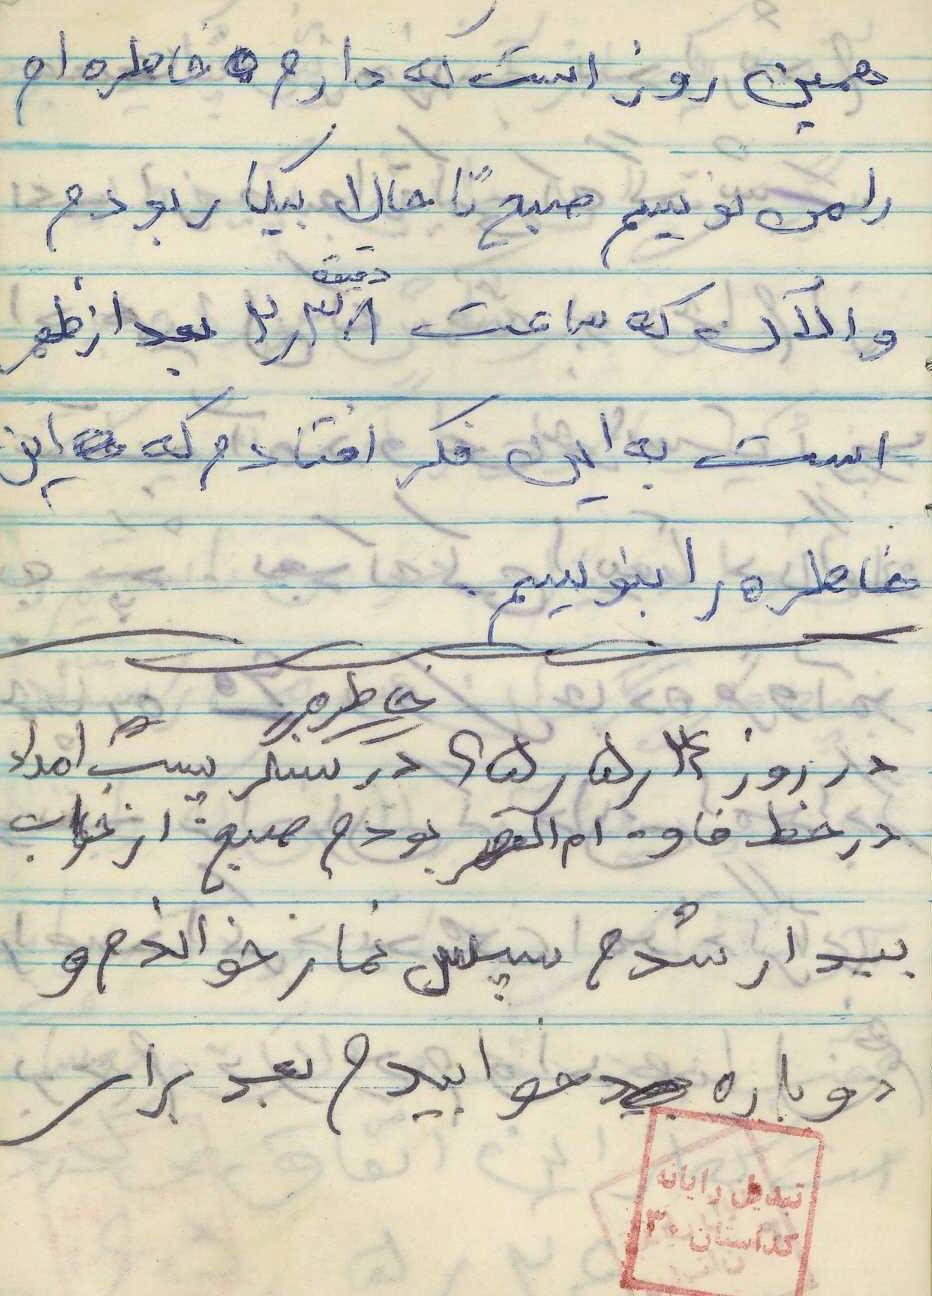 همین روز است که دارم خاطره ام
را می نویسم صبح تا حالا بیکار بودم
دقیقه
و الآن که ساعت ۲٫۳۸ بعد از ظهر
است به این فکر افتادم که این
خاطره را بنویسم.
خاطره
در روز ۲۴٫۵٫۶۵ در سنگر پست امداد
در خط فاو - ام القصر بودم صبح از خواب
بیدار شدم سپس نماز خواندم و
دوباره خوابیدم بعد برای
تبدیل رایانه
کداستان ۳۰